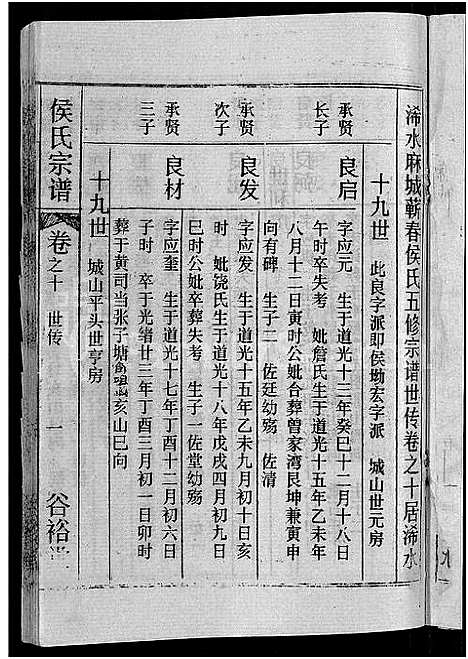 浠水麻城蕲春侯氏五修宗谱世传卷之十居浠水
十九世 此良字派即侯坳宏字派 城山世元房
承贤
长子
良启
字应元 生于道光十三年癸巳十二月十八日
午时卒失考 妣詹氏生于道光十五年乙未年
八月十二日寅时公妣合葬曾家湾艮坤兼寅申
向有碑 生子二 佐廷幼殇 佐清
承贤
次子
良发
字应发 生于道光十五年乙未九月初十日亥
时 妣饶氏生于道光十八年戊戌四月初九日
巳时公妣卒葬失考 生子一佐堂幼殇
承贤
三子
良材
字应奎 生于道光十七年丁酉十二月初六日
子时 卒于光绪廿三年丁酉三月初一日卯时
葬于黄司当张子塘亥山巳向
十九世 城山平头世亨房
侯氏宗谱
卷之十 世传 一 谷裕堂